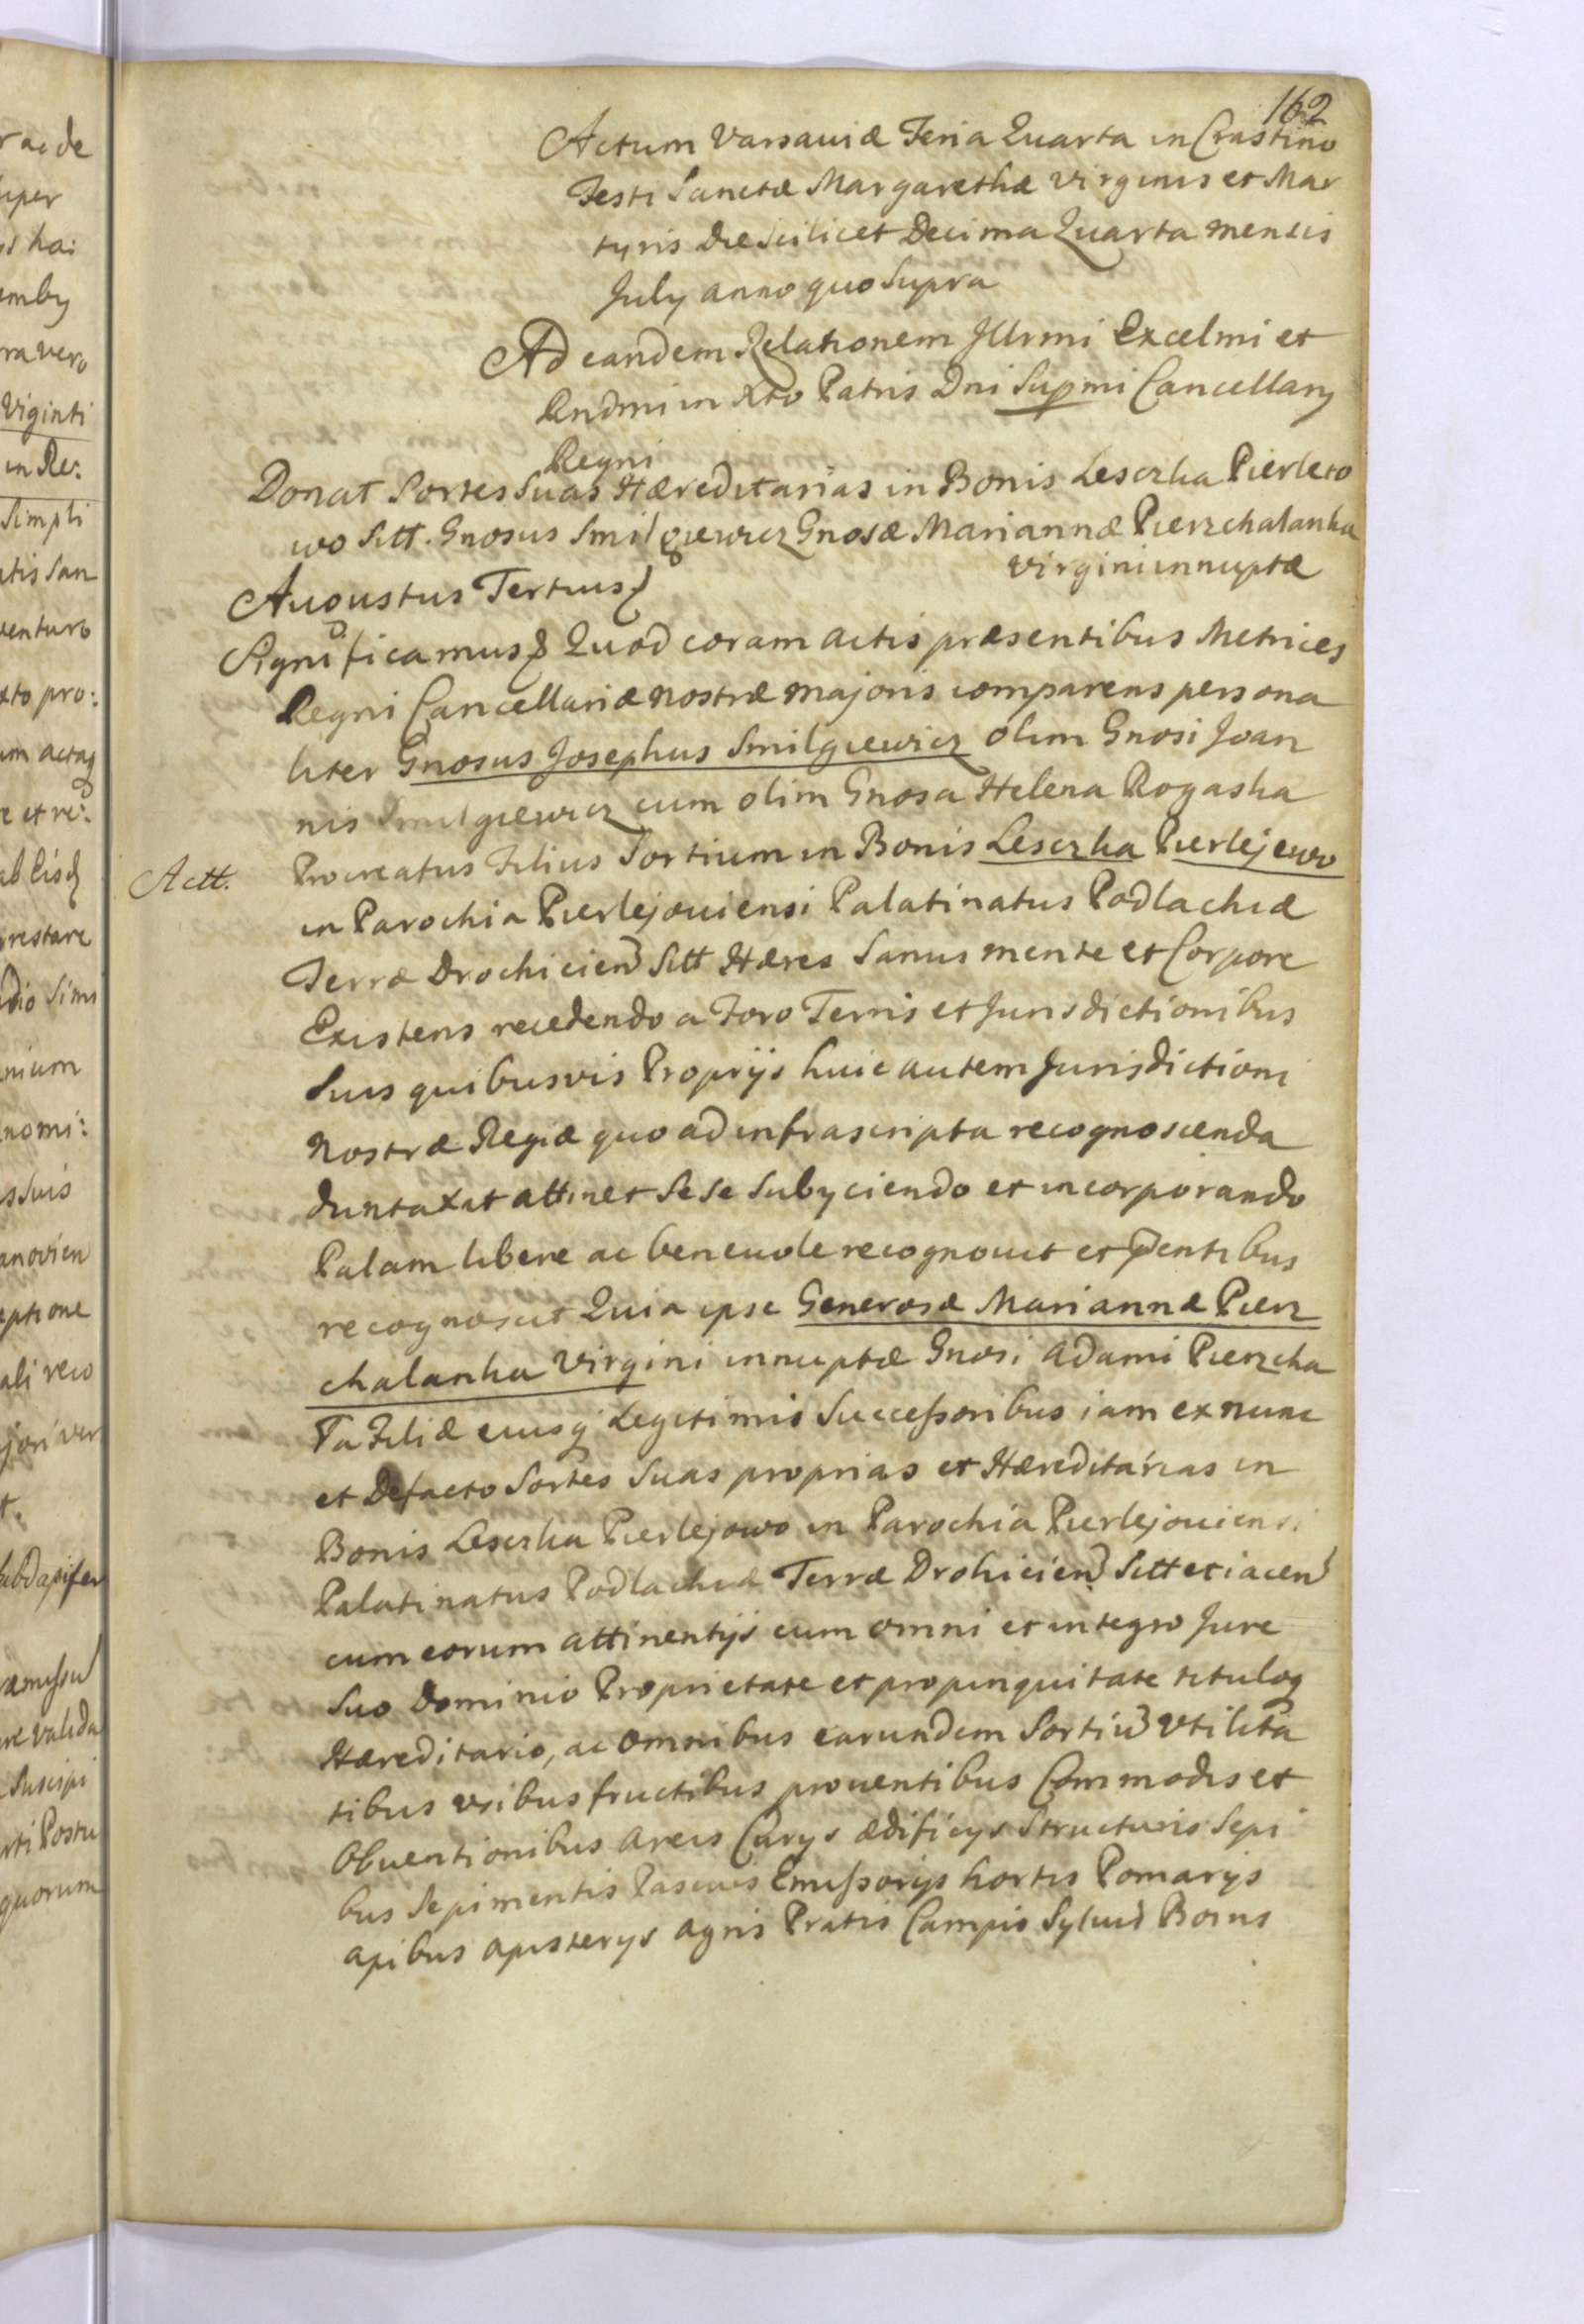 162
Actum Varsaviæ Feria Quarta in Crastino
Festi Sanctæ Margarethæ Virginis et Mar
tyris die scilicet Decima Quarta mensis
July anno quo supra
Ad eandem Relationem Illrmi Excelmi et
Rndmi in Xto Patris Dni Supmi Cancellary
Regni
Donat Sortes Suas Hæreditarias in Bonis Leszka Pierleio
wo sitt. Gnosus Smilgiewicz Gnosæ Mariannæ Pierzchalanka
Virgini innuptæ
Augustus Tertius
Significamus Quod coram actis præsentibus Metrices
Regni Cancellariæ nostræ majoris comparens persona
liter Gnosus Josephus Smilgiewicz olim Gnosi Joan
nis Smilgiewicz cum olim Gnosa Helena Rogaska
Procreatus Filius Sortium in Bonis Leszka Pierlejewo
Actt.
in Parochia Pierlejoviensi Palatinatus Podlachiæ
Terræ Drochicien sitt Hæres Sanus mente et Corpore
Existens recedendo a Foro Terris et Jurisdictionibus
Suis quibusvis Proprijs huic autem Jurisdictioni
Nostræ Regiæ quo ad infrascripta recognoscenda
duntaxat attinet sese subyciendo et incorporando
Palam libere ac benevole recognovit et pentibus
recognoscit Quia ipse Generosæ Mariannæ Pierz
chalanka Virgini innuptæ Gnosi Adami Pierzcha
ła Filiæ eiusq Legitimis Successoribus iam ex nunc
et Defacto Sortes Suas proprias et Hæreditarias in
Bonis Leszka Pierlejowo in Parochia Pierlejoviensi
Palatinatus Podlachiæ Terræ Drohicien sitt et iacen
cum eorum attinentijs cum omni et integro Jure
Suo Dominio Proprietate et propinquitate tituloq
Hæreditario, ac Omnibus earundem Sortiu Vtilita
tibus vsibus fructibus proventibus Commodis et
Obventionibus areis Curys ædificys Structuris Sepi
bus Sepimentis Pascuis Emissorijs hortis Pomarijs
apibus apisterys agris Pratis Campis Sylvis Boris